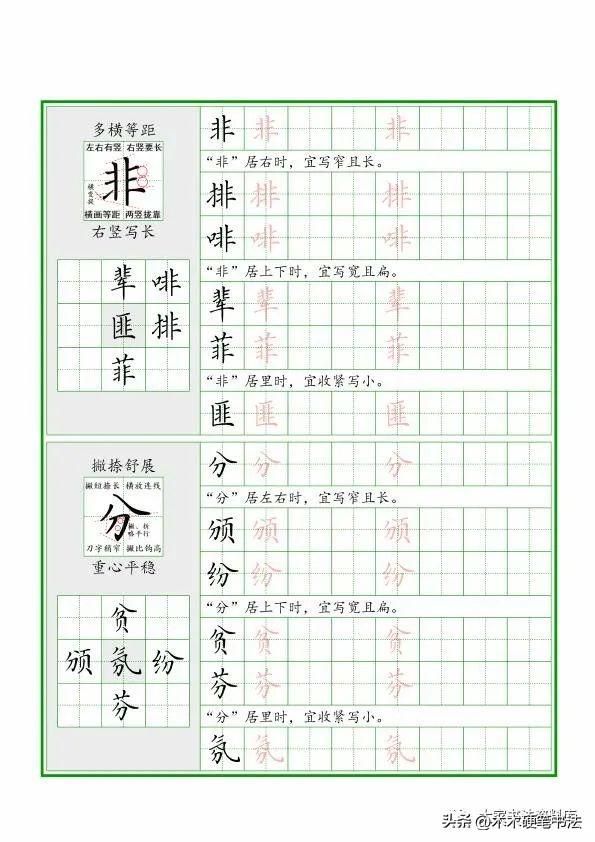 多横等距
左右有竖 右竖要长
非
横变提
横画等距 两竖拢靠
右竖写长
辈 啡
匪 排
菲
非 非 非
“非”居右时，宜写窄且长。
排 排 排
啡 啡 啡
“非”居上下时，宜写宽且扁。
辈 辈 辈
菲 菲 菲
“非”居里时，宜收紧写小。
匪 匪 匪
撇捺舒展
撇短捺长 横放连线
分
撇、折
略平行
刀字稍窄 撇比钩高
重心平稳
贫
颁 氛 纷
芬
分 分 分
“分”居左右时，宜写窄且长。
颁 颁 颁
纷 纷 纷
“分”居上下时，宜写宽且扁。
贫 贫 贫
芬 芬 芬
“分”居里时，宜收紧写小。
氛 氛 氛
头条 @木木硬笔书法